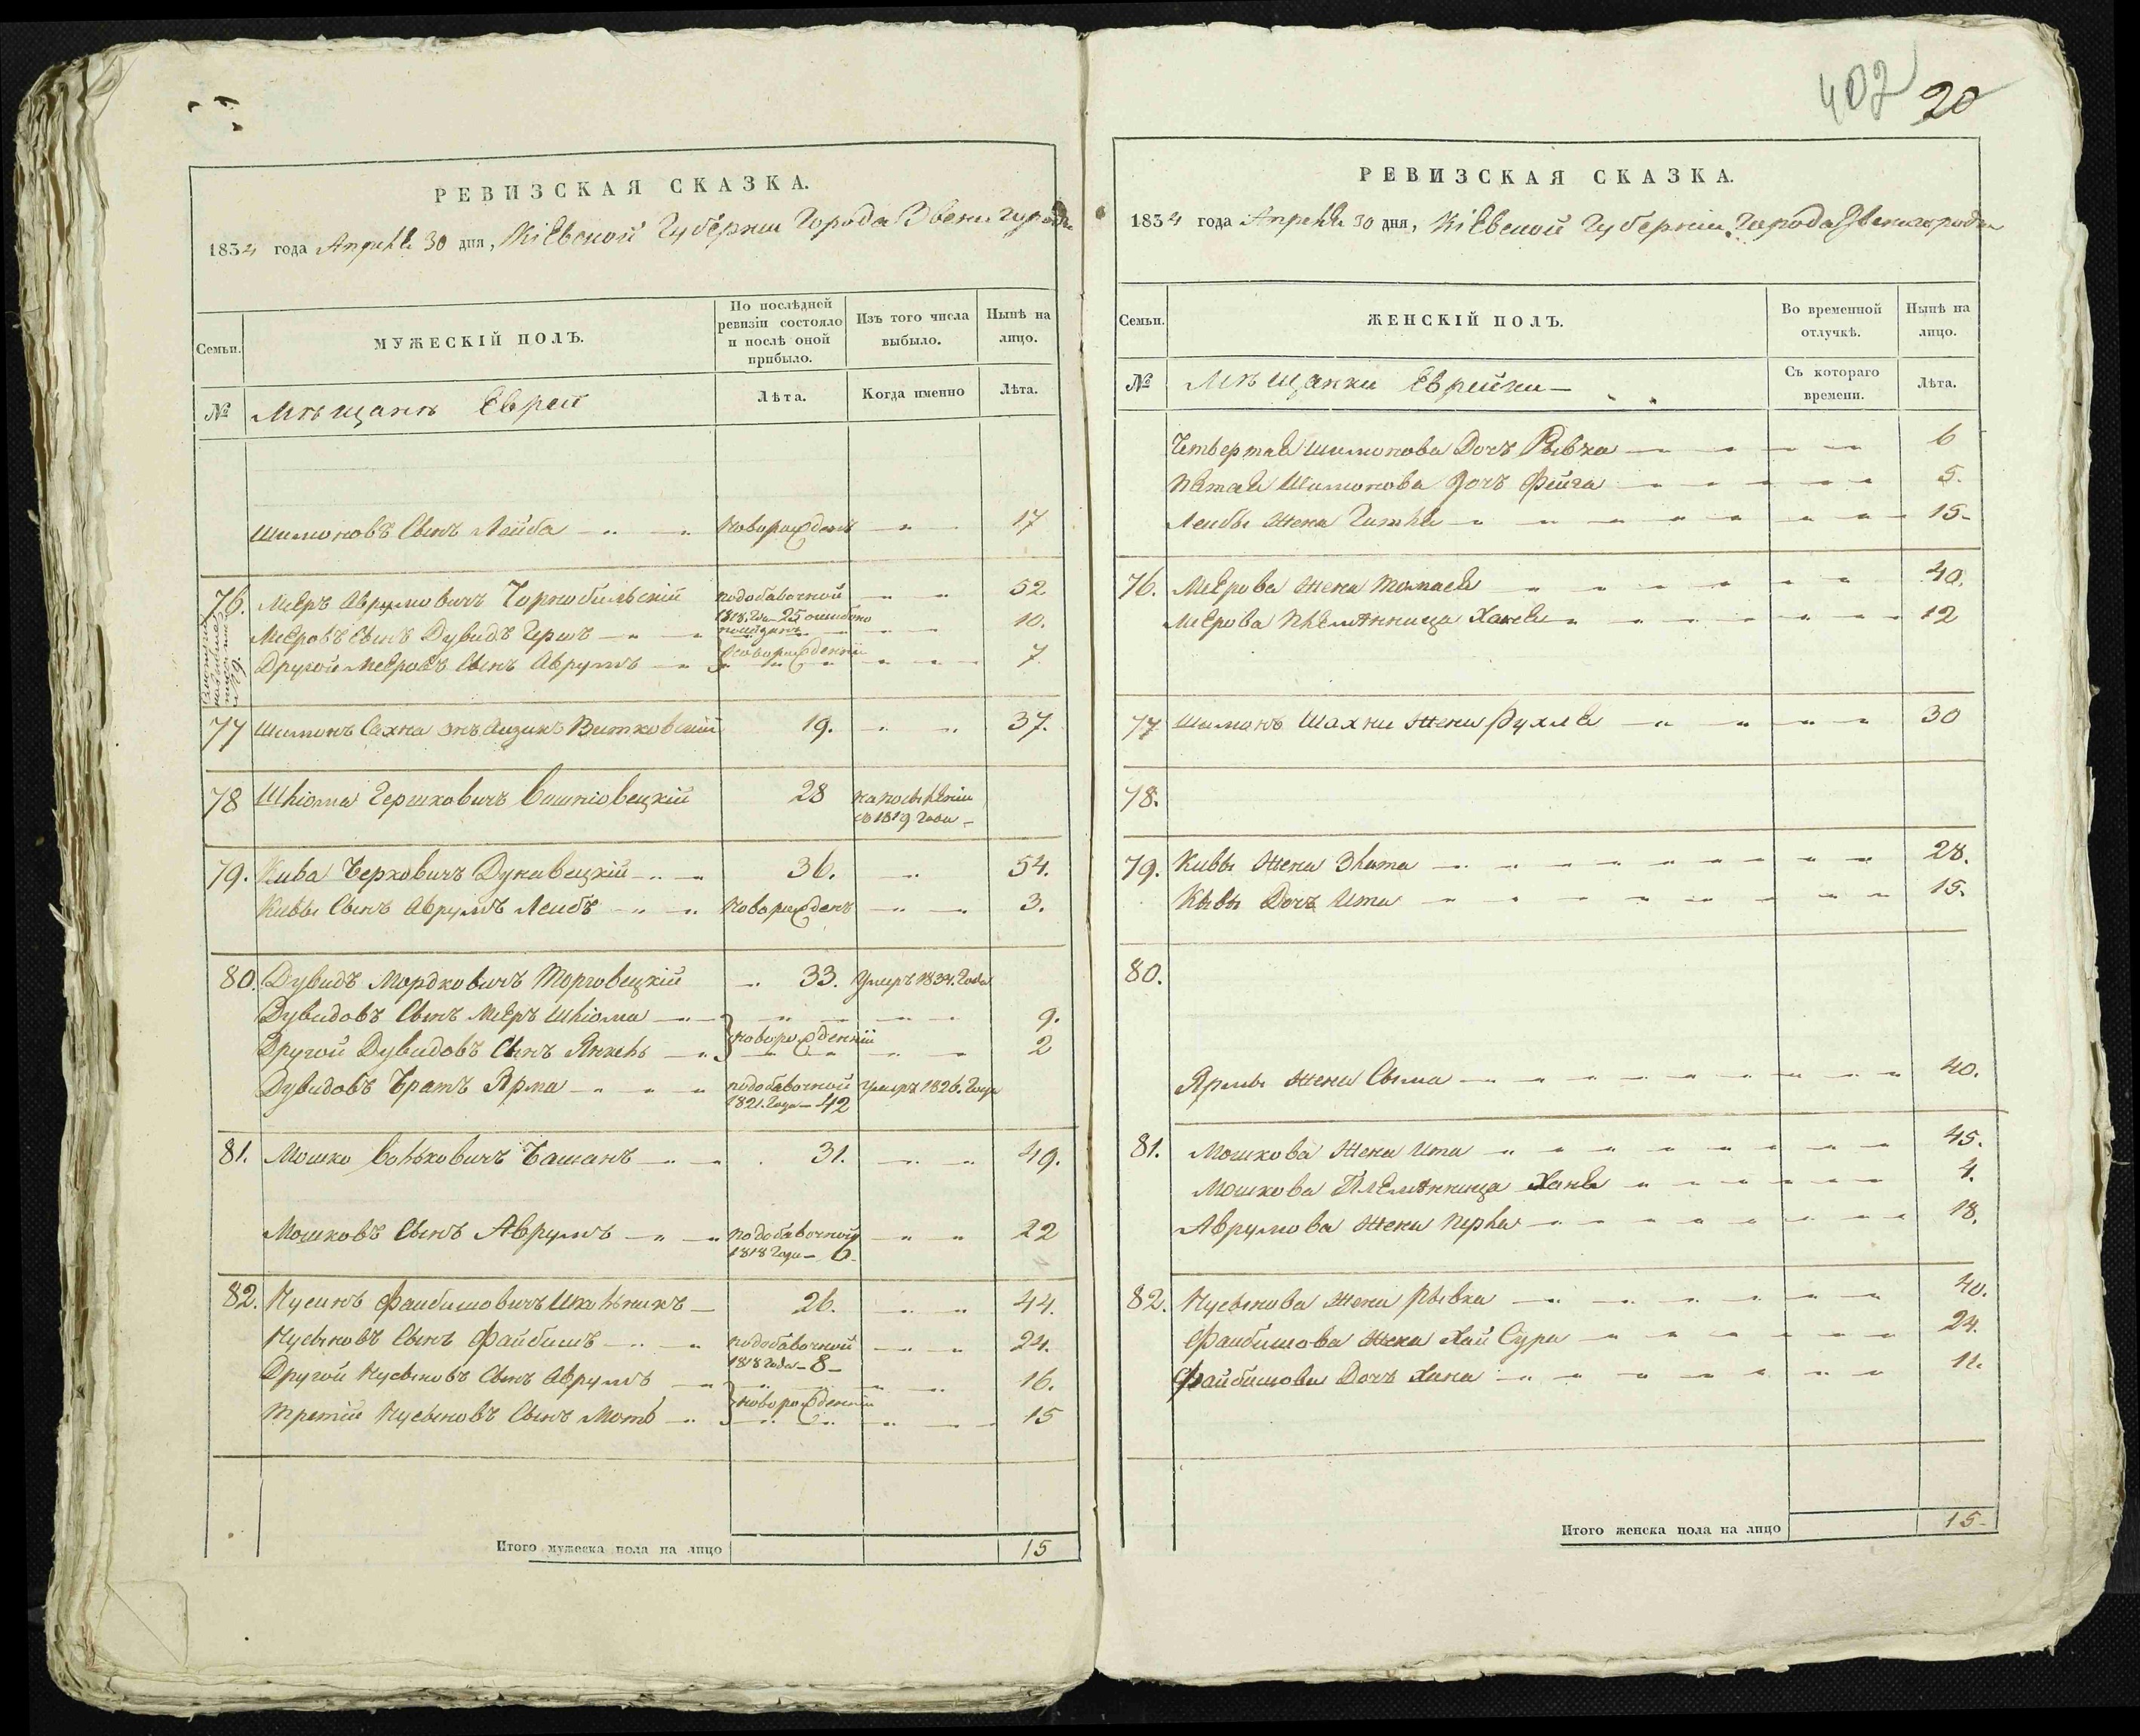 402 20
РЕВИЗСКАЯ СКАЗКА.
1834 года Апреля 30 дня, Кіевской Губерніи Города Звенигородки
Семьи.
МУЖЕСКІЙ ПОЛЪ.
По послѣдней ревизіи состояло и послѣ оной прибыло.
Изъ того числа выбыло.
Нынѣ на лицо.
№
Мѣщанѣ Евреи
Лѣта.
Когда именно
Лѣта.
Шимоновъ Сынъ Лейба новорожденъ 17
76. Меэръ Аврумовичъ Чорнобильскій подобавочной 52
1818. года 25 ошибкою
Меэровъ Сынъ Дувидъ Гершъ 10.
Другой Меэровъ Сынъ Аврумъ новорожденніи 7
77 Шимонъ Сахна Айзикъ Витковскій 19. 37.
78 Шліома Гершковичъ Вошніовецкій 28
на поселеніи
въ 1819 года
79. Кива Берковичъ Дунавецкій 36. 54.
Кивы Сынъ Аврумъ Лейбъ новорожденъ 3.
80. Дувидъ Мордковичъ Торговецкій 33. Умеръ 1834. Года
Дувидовъ Сынъ Меэръ Шліома 9.
новорожденніи
Другой Дувидовъ Сынъ Янкель 2
Дувидовъ Братъ Ярма подобавочной Умеръ 1826. Года
1821. Года 42
81. Мошко Волковичъ Башанъ 31. 49.
Мошковъ Сынъ Аврумъ подобавочной 22
1818 Года 6
82. Нусинъ Файбишовичъ Школьникъ 26. 44.
Нусыновъ Сынъ Файбишъ подобавочной 24.
1818 Года 8
Другой Нусыновъ Сынъ Аврумъ 16.
новорожденніи
Третій Нусыновъ Сынъ Моть 15
Итого мужеска пола на лицо 15
РЕВИЗСКАЯ СКАЗКА.
1834 года Апреля 30 дня, Кіевской Губерніи, Города Звенигородки
Семьи.
ЖЕНСКІЙ ПОЛЪ.
Во временной отлучкѣ.
Нынѣ на лицо.
№
Мѣщанки Еврейки
Съ котораго времени.
Лѣта.
Четвертая Шимонова Дочъ Рывка 6
Пятая Шимонова Дочъ Фейга 5.
Лейбы Жена Гитля 15
76. Меэрова Жена Томася 40.
Меэрова Племѣнница Ханя 12
77 Шимонъ Шахни Жена Рухля 30
78.
79. Кивы Жена Злата 28.
Кывы Дочъ Ита 15.
80.
Ярмы Жена Сыма 40.
81. Мошкова Жена Ита 45.
Мошкова Племѣнница Ханя 4.
Аврумова Жена Перля 18.
82. Нусынова Жена Рывка 40.
Файбишова Жена Хая Сура 24.
Файбишова Дочъ Хана 11.
Итого женска пола на лицо 15